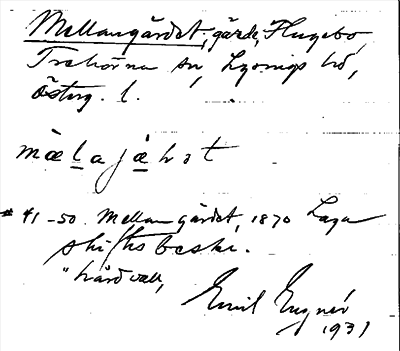 Mellangärdet, gärde, Flugebo,
Trehörna sn, Lysings hd,
Österg. l.
mæḷajæ̣ḷet
41-50. Mellangärdet, 1870 Laga
skiftsbeskr.
"hårdvall,
Emil
1931